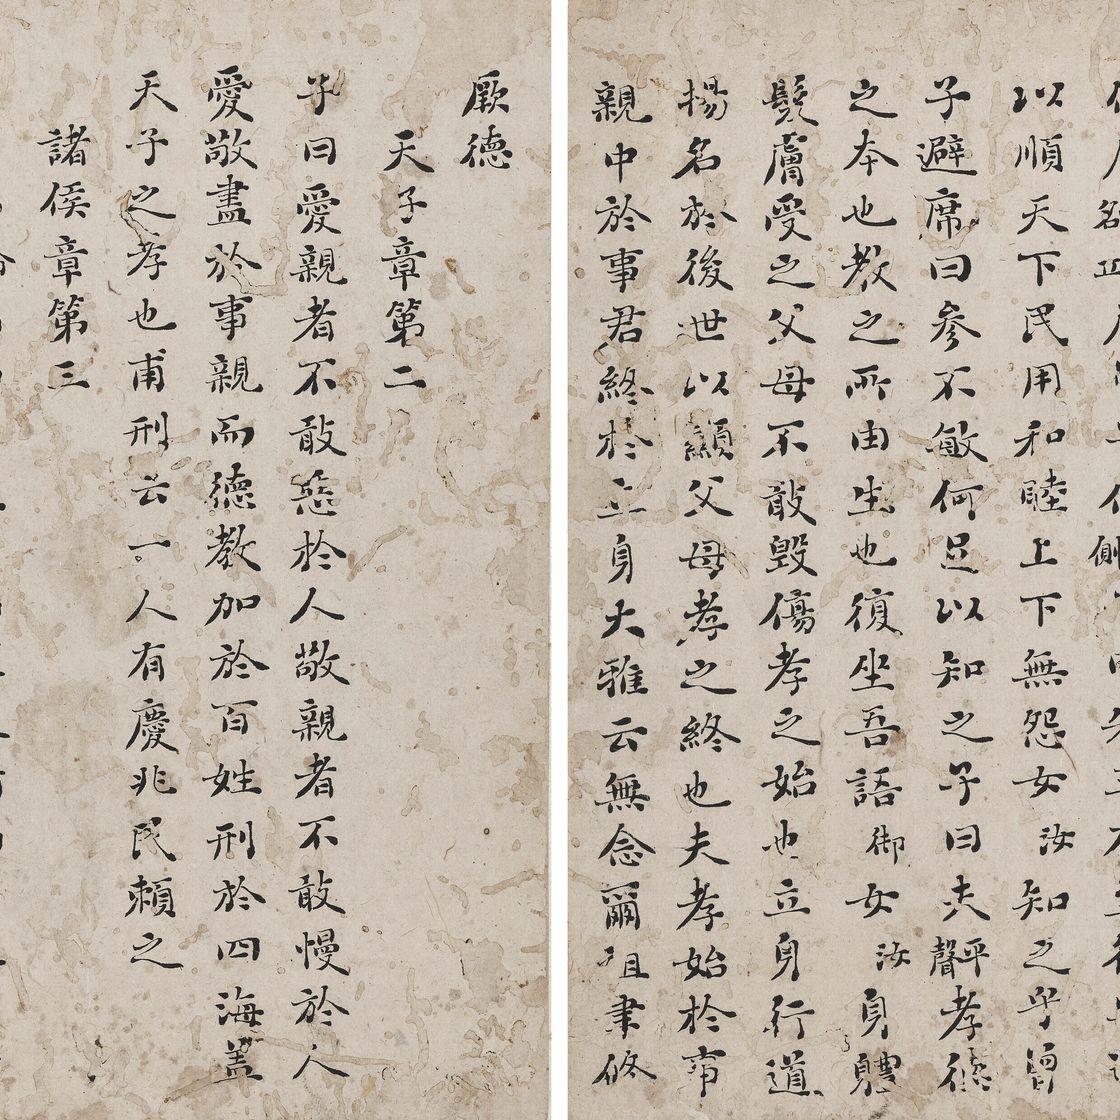 名丘側
以順天下民用和睦上下無怨女汝知之乎曾
子避席曰參不敏何足以知之子曰夫平聲孝德
之本也教之所由生也復坐吾語御女汝身體
髮膚受之父母不敢毀傷孝之始也立身行道
揚名於後世以顯父母孝之終也夫孝始於事
親中於事君終於立身大雅云無念爾祖聿脩
厥德
天子章第二
子曰愛親者不敢惡於人敬親者不敢慢於人
愛敬盡於事親而德教加於百姓刑於四海蓋
天子之孝也甫刑云一人有慶兆民賴之
諸侯章第三